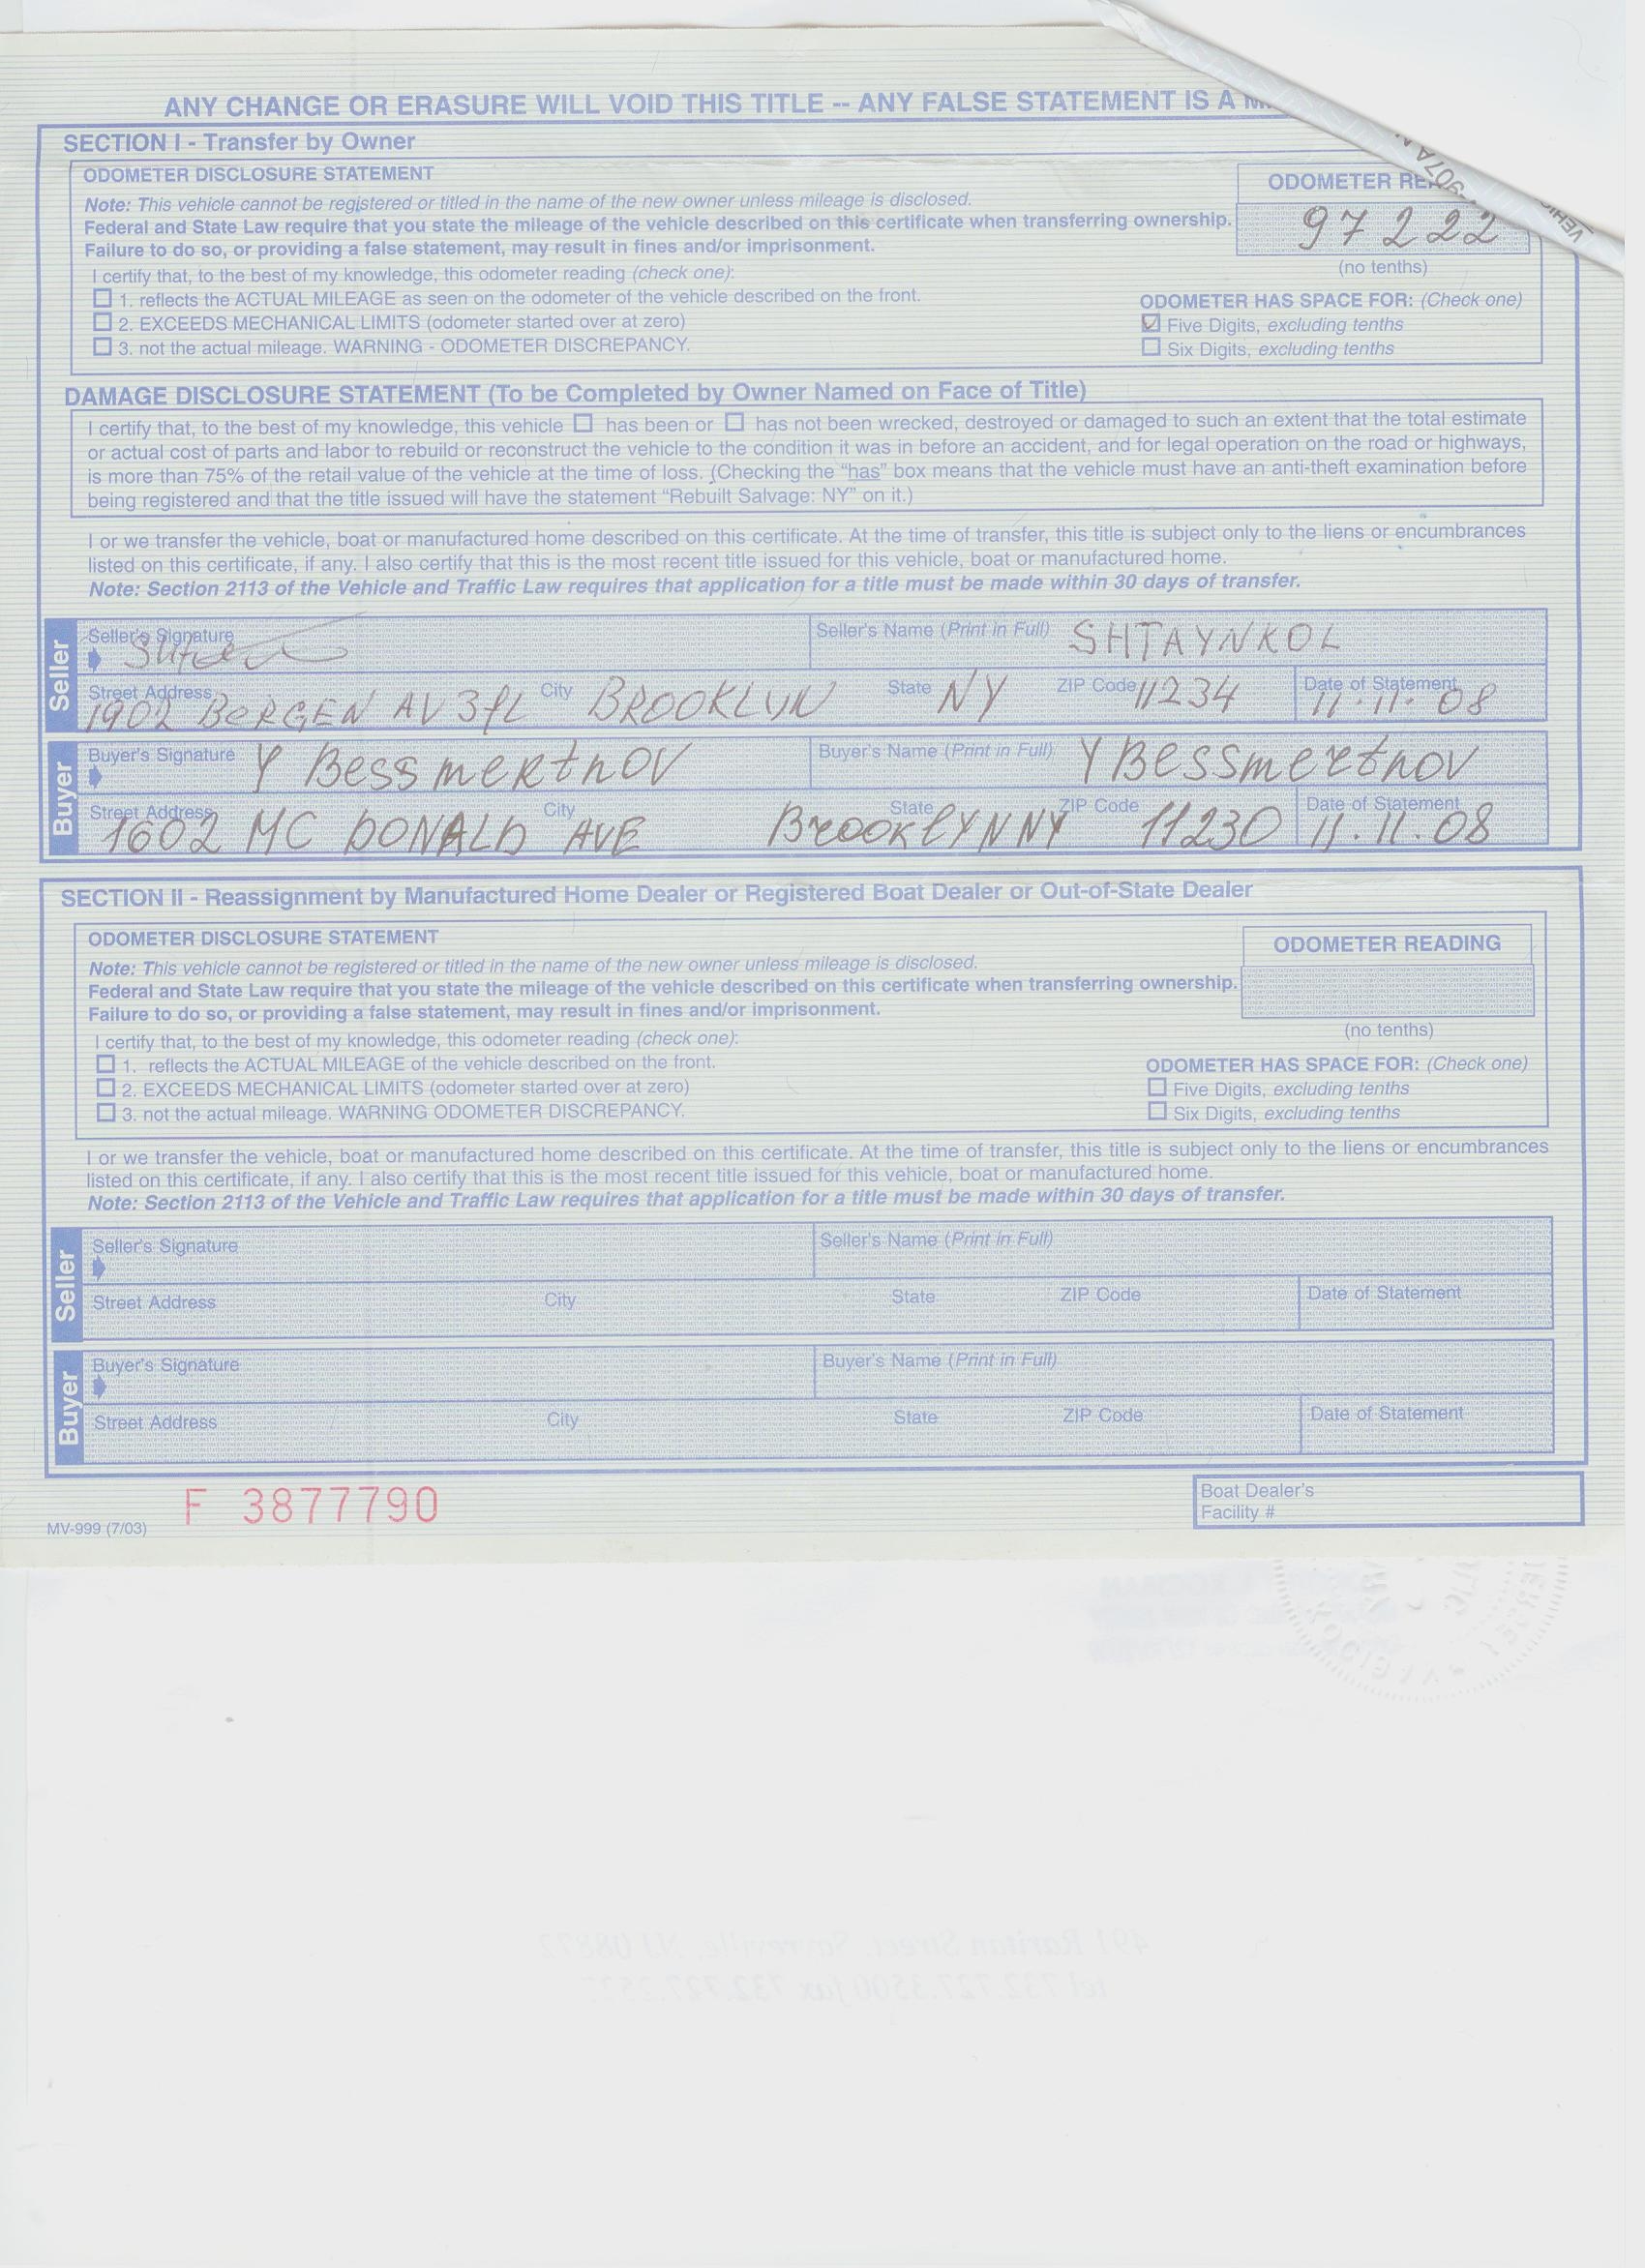 ANY CHANGE OR ERASURE WILL VOID THIS TITLE -- ANY FALSE STATEMENT IS A
SECTION I - Transfer by Owner
ODOMETER DISCLOSURE STATEMENT
ODOMETER
Note: This vehicle cannot be registered or titled in the name of the new owner unless mileage is disclosed.
Federal and State Law require that you state the mileage of the vehicle described on this certificate when transferring ownership.
97222
Failure to do so, or providing a false statement, may result in fines and/or imprisonment.
(no tenths)
I certify that, to the best of my knowledge, this odometer reading (check one):
1. reflects the ACTUAL MILEAGE as seen on the odometer of the vehicle described on the front.
ODOMETER HAS SPACE FOR: (Check one)
2. EXCEEDS MECHANICAL LIMITS (odometer started over at zero)
Five Digits, excluding tenths
3. not the actual mileage. WARNING - ODOMETER DISCREPANCY.
Six Digits, excluding tenths
DAMAGE DISCLOSURE STATEMENT (To be Completed by Owner Named on Face of Title)
I certify that, to the best of my knowledge, this vehicle has been or has not been wrecked, destroyed or damaged to such an extent that the total estimate
or actual cost of parts and labor to rebuild or reconstruct the vehicle to the condition it was in before an accident, and for legal operation on the road or highways,
is more than 75% of the retail value of the vehicle at the time of loss. (Checking the “has” box means that the vehicle must have an anti-theft examination before
being registered and that the title issued will have the statement “Rebuilt Salvage: NY” on it.)
I or we transfer the vehicle, boat or manufactured home described on this certificate. At the time of transfer, this title is subject only to the liens or encumbrances
listed on this certificate, if any. I also certify that this is the most recent title issued for this vehicle, boat or manufactured home.
Note: Section 2113 of the Vehicle and Traffic Law requires that application for a title must be made within 30 days of transfer.
Seller
Seller's Signature
Seller's Name (Print in Full) SHTAYNKOL
Street Address City State ZIP Code Date of Statement
1902 BERGEN AV 3fL BROOKLYN NY 11234 11.11.08
Buyer
Buyer's Signature Y Bessmertnov Buyer's Name (Print in Full) Y Bessmertnov
Street Address City State ZIP Code Date of Statement
1602 MC DONALD AVE BrooklYN NY 11230 11.11.08
SECTION II - Reassignment by Manufactured Home Dealer or Registered Boat Dealer or Out-of-State Dealer
ODOMETER DISCLOSURE STATEMENT
ODOMETER READING
Note: This vehicle cannot be registered or titled in the name of the new owner unless mileage is disclosed.
Federal and State Law require that you state the mileage of the vehicle described on this certificate when transferring ownership.
Failure to do so, or providing a false statement, may result in fines and/or imprisonment.
(no tenths)
I certify that, to the best of my knowledge, this odometer reading (check one):
1. reflects the ACTUAL MILEAGE of the vehicle described on the front.
ODOMETER HAS SPACE FOR: (Check one)
2. EXCEEDS MECHANICAL LIMITS (odometer started over at zero)
Five Digits, excluding tenths
3. not the actual mileage. WARNING ODOMETER DISCREPANCY.
Six Digits, excluding tenths
I or we transfer the vehicle, boat or manufactured home described on this certificate. At the time of transfer, this title is subject only to the liens or encumbrances
listed on this certificate, if any. I also certify that this is the most recent title issued for this vehicle, boat or manufactured home.
Note: Section 2113 of the Vehicle and Traffic Law requires that application for a title must be made within 30 days of transfer.
Seller
Seller's Signature Seller's Name (Print in Full)
Street Address City State ZIP Code Date of Statement
Buyer
Buyer's Signature Buyer's Name (Print in Full)
Street Address City State ZIP Code Date of Statement
F 3877790
Boat Dealer's
Facility #
MV-999 (7/03)